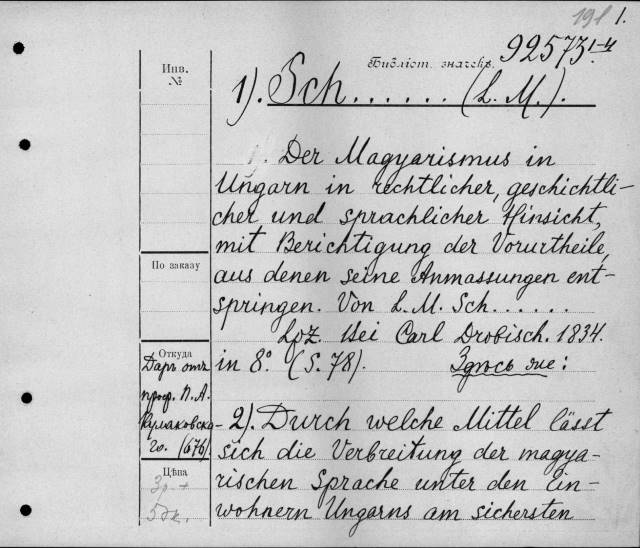 191 1.
92573 1-4
Библіот. значекъ.
Инв.
№
1). Sch...... (L. M.).
Der Magyarismus in
Ungarn in rechtlicher, geschichtli-
cher und sprachlicher Hinsicht,
mit Berichtigung der Vorurtheile,
По заказу
aus denen seine Anmassungen ent-
springen. Von L. M. Sch......
Lpz. bei Carl Drobisch. 1834.
Откуда
Даръ отъ
проф. П. А.
Кулаковска-
го. (676)
in 8º. (S. 78). Здѣсь же:
2). Durch welche Mittel lässt
sich die Verbreitung der magya-
rischen Sprache unter den Ein-
wohnern Ungarns am sichersten
Цѣна
3р. +
5 дк.